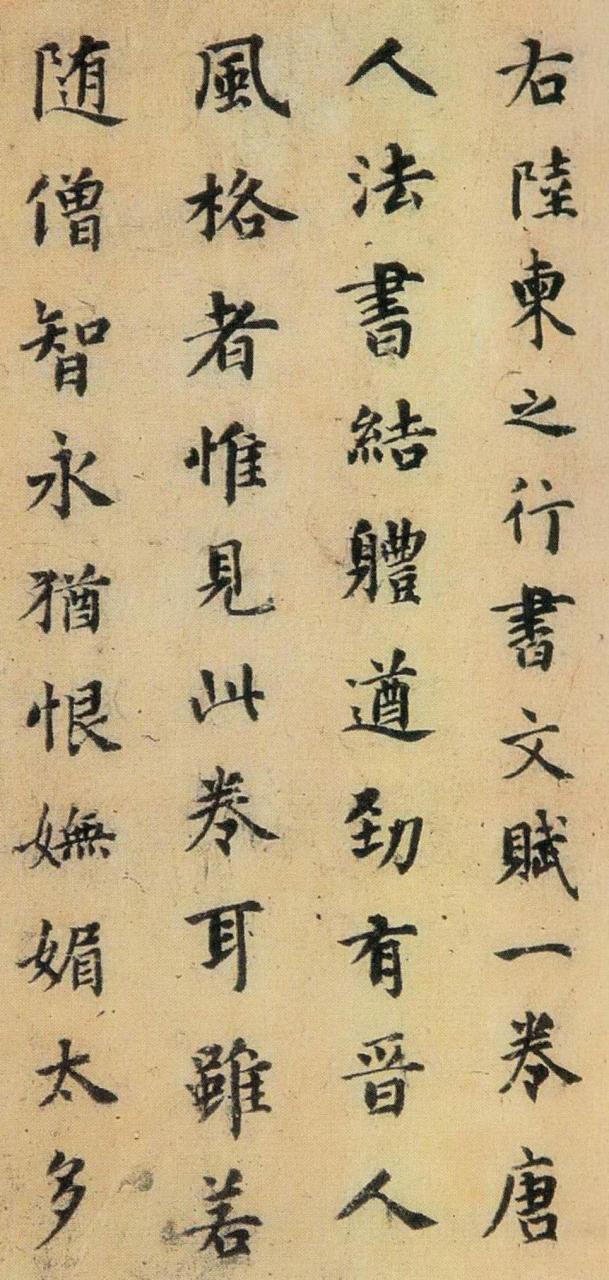 右陸柬之行書文賦一卷唐
人法書結軆遒勁有晉人
風格者惟見此卷耳雖若
隨僧智永猶恨嫵媚太多